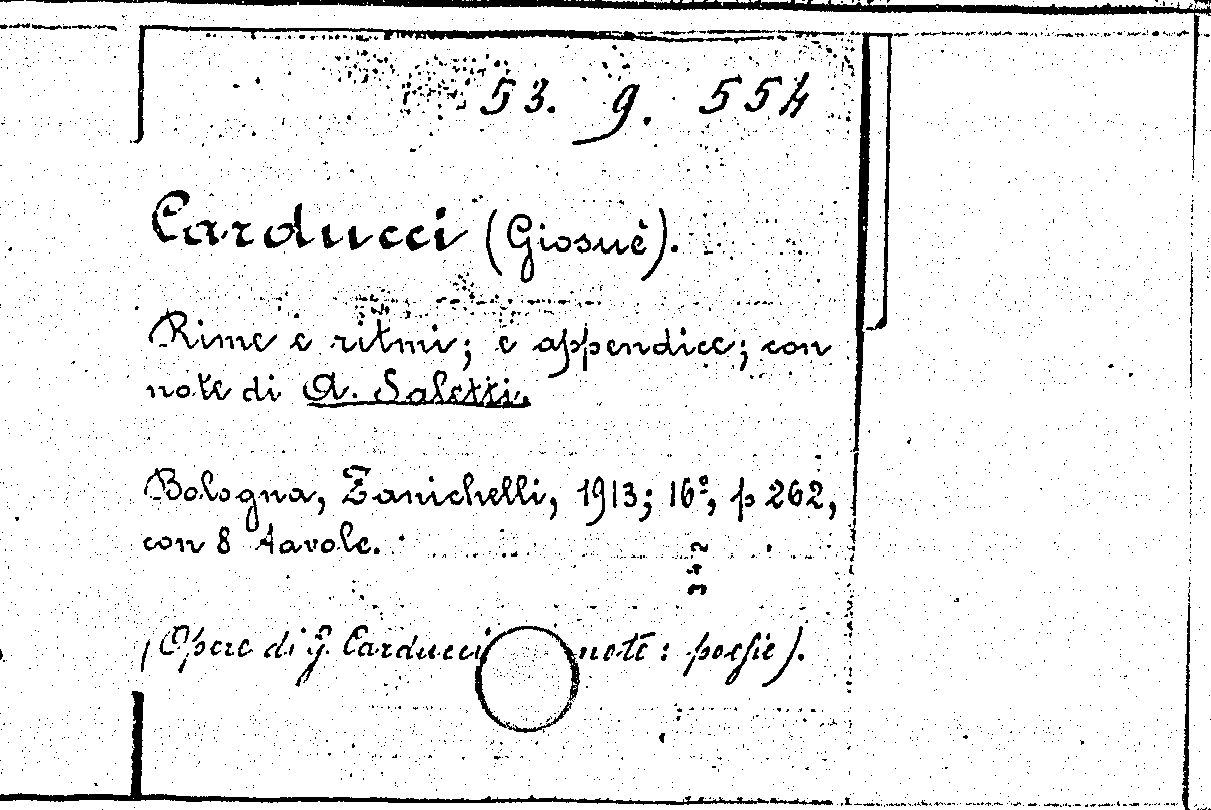 53. 9. 554
Carducci (Giosuè).
Rime e ritmi; e appendice; con
note di A. Saletti.
Bologna, Zanichelli, 1913; 16º, p 262,
con 8 tavole.
342
(Opere di G. Carducci note: poesie).